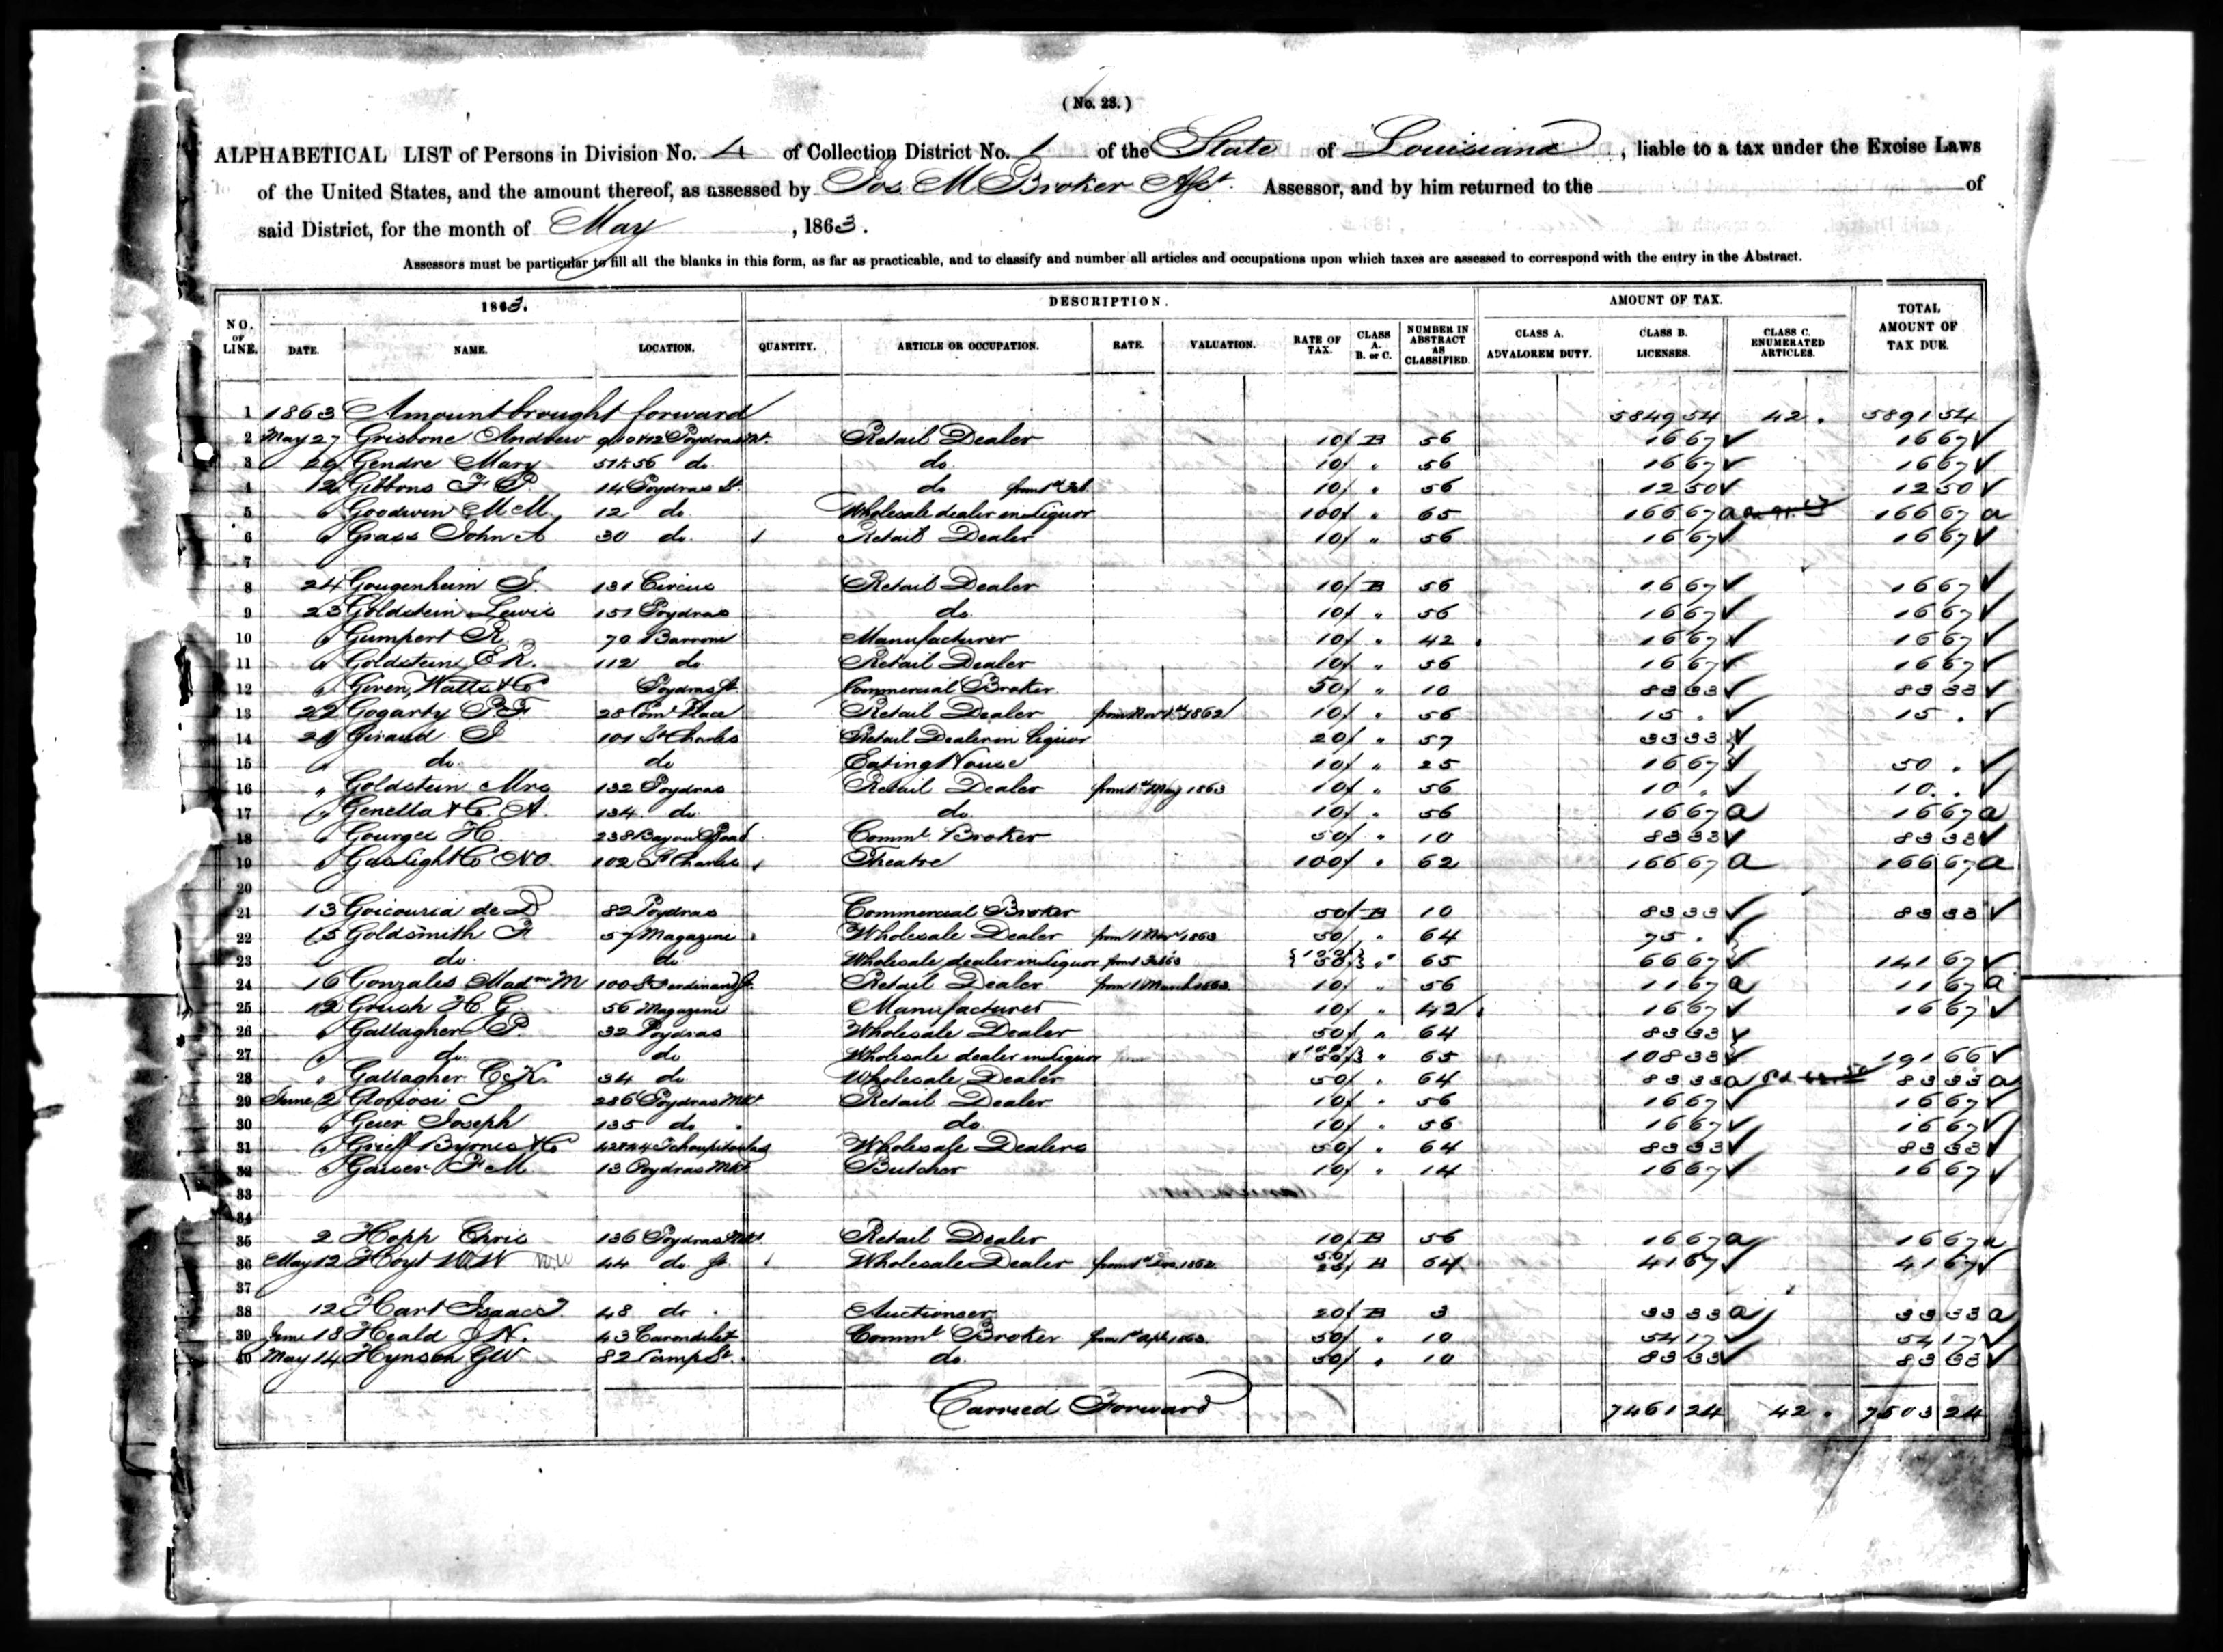 ( No. 23. )
ALPHABETICAL LIST of Persons in Division No. 4 of Collection District No. 1 of the State of Louisiana, liable to a tax under the Excise Laws
of the United States, and the amount thereof, as assessed by Jos M Broker Asst. Assessor, and by him returned to the of
said District, for the month of May, 1863.
Assessors must be particular to fill all the blanks in this form, as far as practicable, and to classify and number all articles and occupations upon which taxes are assessed to correspond with the entry in the Abstract.
1863. DESCRIPTION. AMOUNT OF TAX. TOTAL AMOUNT OF TAX DUE.
NO. OF LINE. DATE. NAME. LOCATION. QUANTITY. ARTICLE OR OCCUPATION. RATE. VALUATION. RATE OF TAX. CLASS A. B. or C. NUMBER IN ABSTRACT AS CLASSIFIED. CLASS A. ADVALOREM DUTY. CLASS B. LICENSES. CLASS C. ENUMERATED ARTICLES.
1 1863 Amount brought forward 5849 54 42 . 5891 54
2 May 27 Grisbone Andrew 9 10 & 12 Poydras Mt. Retail Dealer 10/ B 56 16 67 ✓ 16 67 ✓
3 26 Gendre Mary 51 to 56 do. do. 10/ " 56 16 67 ✓ 16 67 ✓
4 12 Gibbons F P. 14 Poydras St. do from 1st Feb. 10/ " 56 12 50 ✓ 12 50 ✓
5 " Goodwin M M. 12 do. Wholesale dealer in Liquor 100/ " 65 166 67 a 166 67 a
6 " Grass John A 30 do. Retail Dealer 10/ " 56 16 67 ✓ 16 67 ✓
7
8 24 Gougenheim S. 131 Circus Retail Dealer 10/ B 56 16 67 ✓ 16 67 ✓
9 23 Goldstein Lewis 151 Poydras do. 10/ " 56 16 67 ✓ 16 67 ✓
10 " Gumpert R. 70 Barrone Manufacturer 10/ " 42 16 67 ✓ 16 67 ✓
11 " Goldstein E R. 112 do Retail Dealer 10/ " 56 16 67 ✓ 16 67 ✓
12 " Given, Watts & Co Poydras St Commercial Broker 50/ " 10 83 33 ✓ 83 33 ✓
13 22 Gogarty P F 28 Coml Place Retail Dealer from Nov 1st 1862 10/ " 56 15 . ✓ 15 . ✓
14 21 Giraud S 101 St Charles Retail Dealer in Liquor 20/ " 57 33 33 ✓
15 " do. do Eating House 10/ " 25 16 67 ✓ 50 . ✓
16 " Goldstein Mrs 132 Poydras Retail Dealer from 1st May 1863 10/ " 56 10 . ✓ 10 . ✓
17 " Genella & Co A. 134 do. do. 10/ " 56 16 67 a 16 67 a
18 " Gourges H. 238 Bayou Road Comml Broker 50/ " 10 83 33 ✓ 83 33 ✓
19 " Gaslight Co N O. 102 St Charles Theatre 100/ " 62 166 67 a 166 67 a
20
21 13 Goicouria de D 82 Poydras Commercial Broker 50/ B 10 83 33 ✓ 83 33 ✓
22 15 Goldsmith F 57 Magazine Wholesale Dealer from 1 Nov 1863 50/ " 64 75 . ✓
23 " do. do Wholesale dealer in Liquor from 1 Feb 63 " 65 66 67 ✓ 141 67 ✓
24 16 Gonzales Madme M 100 St Ferdinand St. Retail Dealer from 1 March 1863 10/ " 56 11 67 a 11 67 a
25 12 Grush H. G. 56 Magazine Manufacturer 10/ " 42 16 67 ✓ 16 67 ✓
26 " Gallagher P. 32 Poydras Wholesale Dealer 50/ " 64 83 33 ✓
27 " do. do Wholesale dealer in Liquor " 65 108 33 ✓ 191 66 ✓
28 " Gallagher C. K. 34 do. Wholesale Dealer 50/ " 64 83 33 a 83 33 a
29 June 2 Gloriosi S 236 Poydras Mkt. Retail Dealer 10/ " 56 16 67 ✓ 16 67 ✓
30 " Geier Joseph 135 do " do. 10/ " 56 16 67 ✓ 16 67 ✓
31 " Grieff Byrnes & Co 42 & 44 Tchoupitoulas Wholesale Dealers 50/ " 64 83 33 ✓ 83 33 ✓
32 " Gaiser F M. 13 Poydras Mkt. Butcher 10/ " 14 16 67 ✓ 16 67 ✓
33
34
35 2 Hopp Chris 136 Poydras Mkt. Retail Dealer 10/ B 56 16 67 a 16 67 a
36 May 12 Hoyt W. W 44 do St. Wholesale Dealer from 1st Dec. 1862 50/ 25/ B 64 41 67 ✓ 41 67 ✓
37
38 12 Hart Isaac I. 48 do . Auctioneer 20/ B 3 33 33 a 33 33 a
39 June 18 Heald J N. 43 Carondelet Comml Broker from 1st Apl 1863. 50/ " 10 54 17 ✓ 54 17 ✓
40 May 14 Hynson G W. 82 Camp St. do. 50/ " 10 83 33 ✓ 83 33 ✓
Carried Forward 7461 24 42 . 7503 24